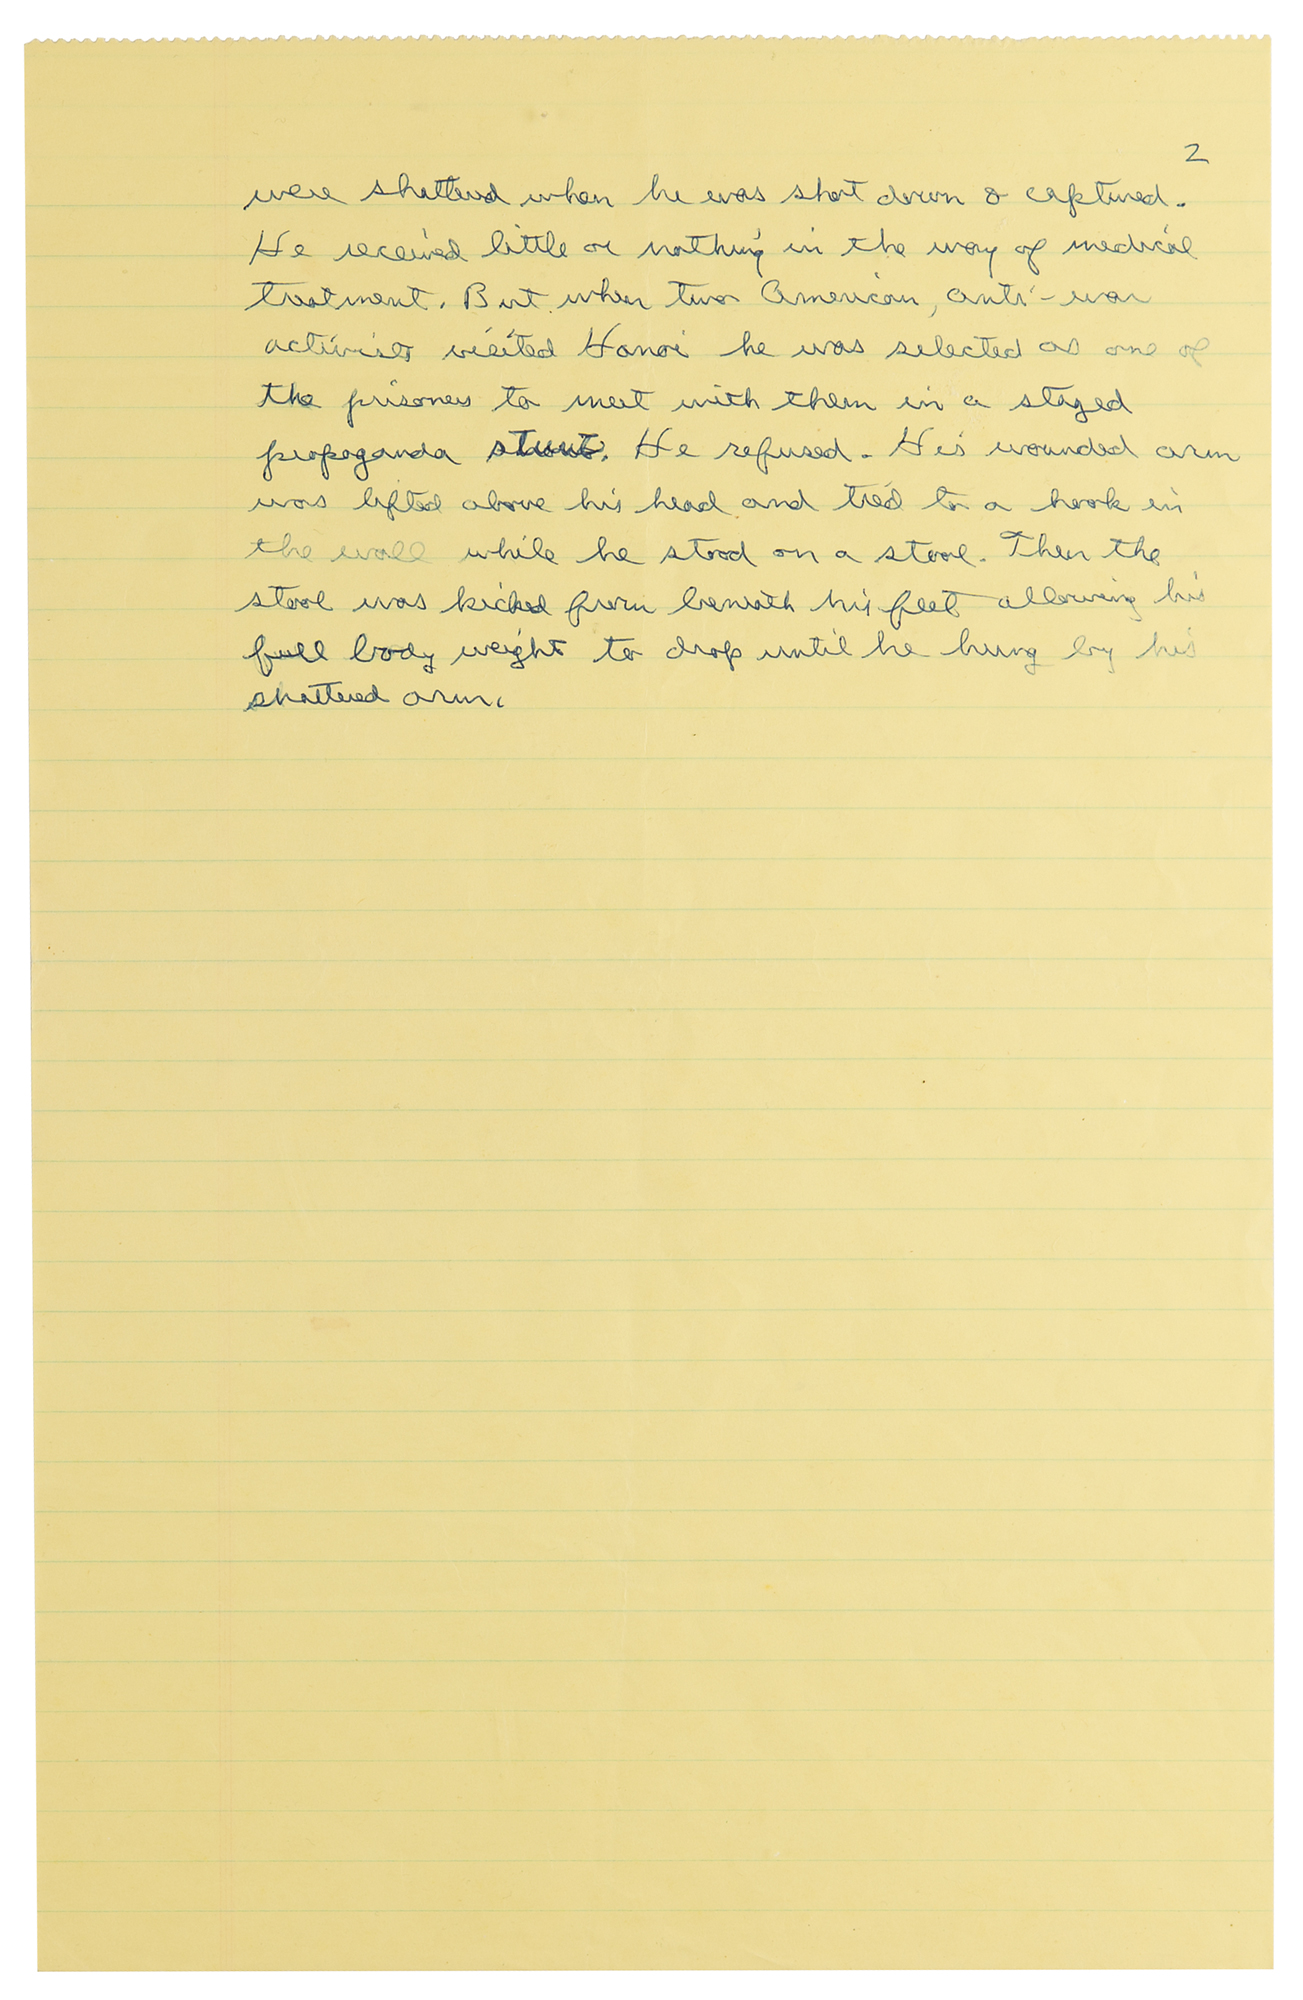 2
were shattered when he was shot down & captured.
He received little or nothing in the way of medical
treatment. But when two American, anti-war
activists visited Hanoi he was selected as one of
the prisoners to meet with them in a staged
propaganda stunt. He refused. His wounded arm
was lifted above his head and tied to a hook in
the wall while he stood on a stool. Then the
stool was kicked from beneath his feet allowing his
full body weight to drop until he hung by his
shattered arm.